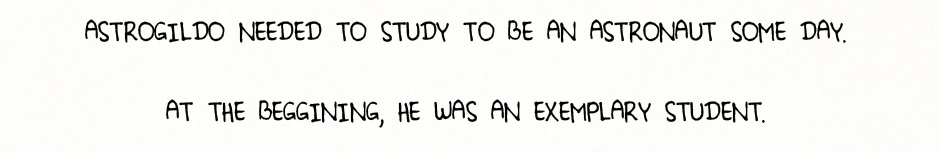 ASTROGILDO NEEDED TO STUDY TO BE AN ASTRONAUT SOME DAY.
AT THE BEGGINING, HE WAS AN EXEMPLARY STUDENT.